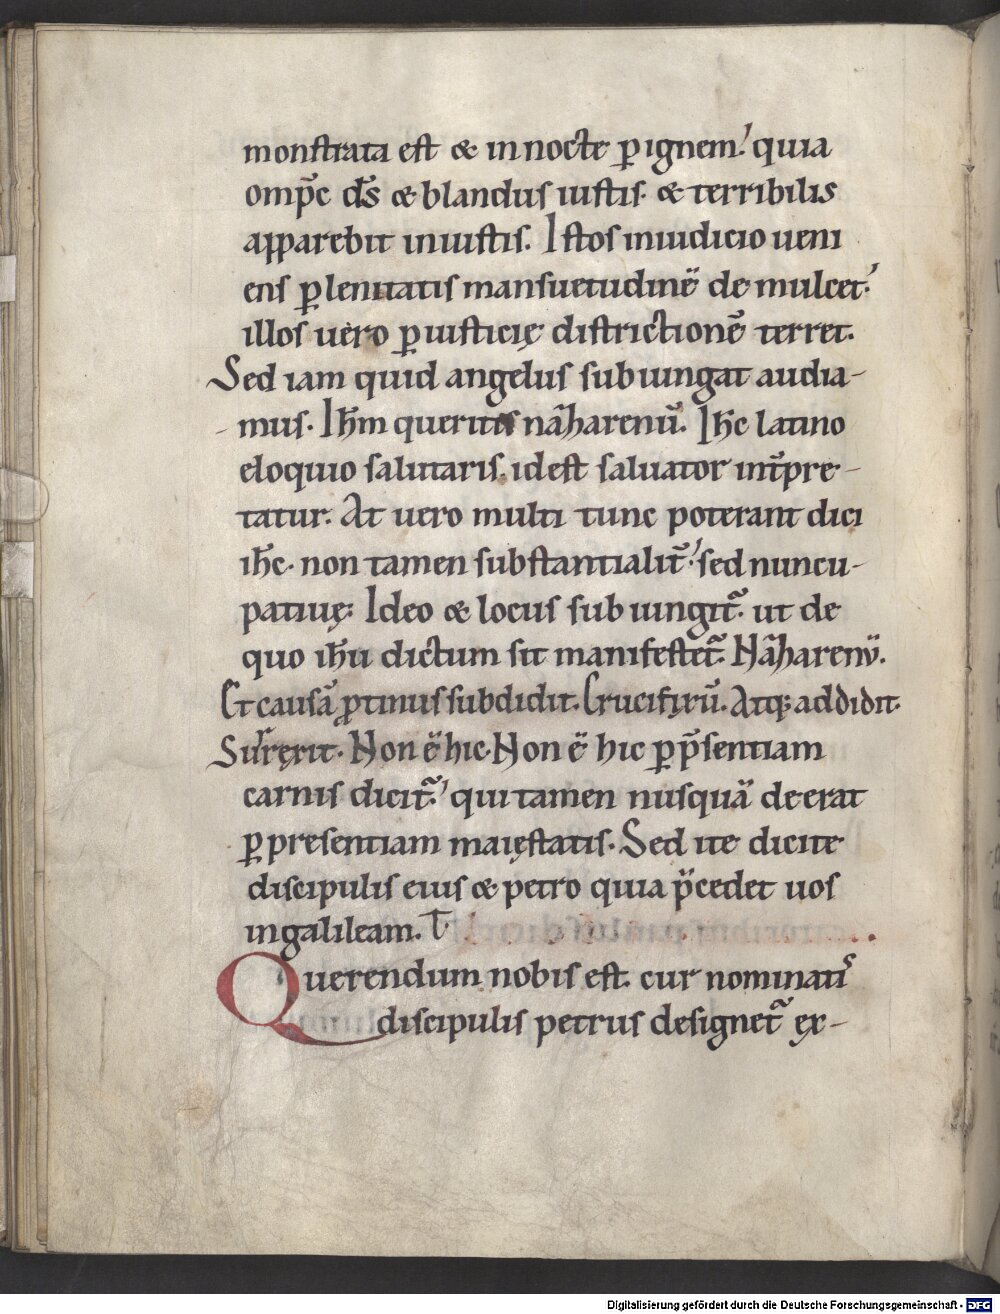 monstrata est & in nocte ꝑ ignem. quia
omp̄c ds̄ & blandus iustis. & terribilis
apparebit iniustis. Istos in iudicio ueni
ens ꝑ lenitatis mansuetudinē de mulcet.
illos uero ꝑ iusticię districtionē terret.
Sed iam quid angelus subiungat audia-
mus. Ihm̄ queritis nāzarenū. Ihc̄ latino
eloquio salutaris. id est saluator int̄pre-
tatur. At uero multi tunc poterant dici
ihc̄. non tamen substantialit̄. sed nuncu-
patiuę; Ideo & locus subiungit᷑. ut de
quo ihū dictum sit manifestet᷑. Nāzarenū.
Et causā ꝓtinus subdidit. Crucifixū. Atq; addidit.
Surręxit. Non ē hic. Non ē hic ꝑ p̄sentiam
carnis dicit᷑. qui tamen nusquā deerat
ꝑ presentiam maięstatis. Sed ite dicite
discipulis eius & petro quia p̄cedet uos
in galileam. T
Querendum nobis est. cur nominatī
discipulis petrus designet᷑ ex-
Digitalisierung gefördert durch die Deutsche Forschungsgemeinschaft - DFG